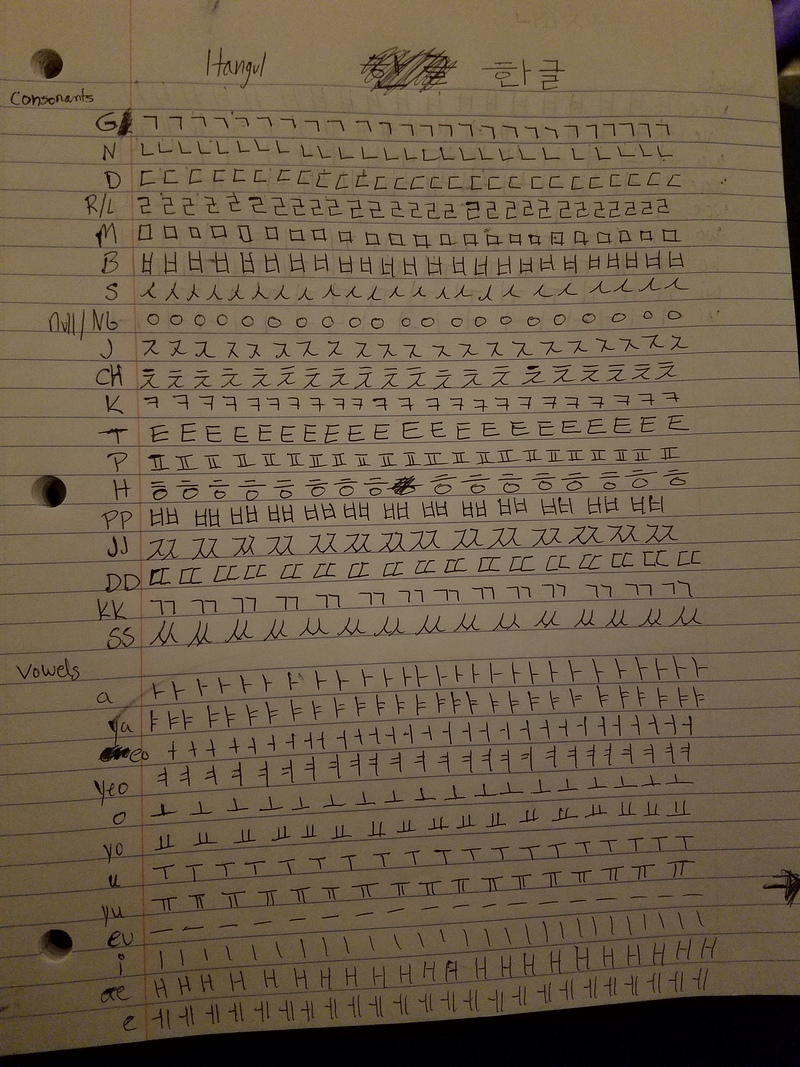 Hangul 한글
Consonants
G ㄱ ㄱ ㄱ ㄱ ㄱ ㄱ ㄱ ㄱ ㄱ ㄱ ㄱ ㄱ ㄱ ㄱ ㄱ ㄱ ㄱ ㄱ ㄱ ㄱ ㄱ ㄱ ㄱ ㄱ
N ㄴ ㄴ ㄴ ㄴ ㄴ ㄴ ㄴ ㄴ ㄴ ㄴ ㄴ ㄴ ㄴ ㄴ ㄴ ㄴ ㄴ ㄴ ㄴ ㄴ ㄴ ㄴ ㄴ ㄴ ㄴ
D ㄷ ㄷ ㄷ ㄷ ㄷ ㄷ ㄷ ㄷ ㄷ ㄷ ㄷ ㄷ ㄷ ㄷ ㄷ ㄷ ㄷ ㄷ ㄷ ㄷ ㄷ ㄷ ㄷ ㄷ ㄷ
R/L ㄹ ㄹ ㄹ ㄹ ㄹ ㄹ ㄹ ㄹ ㄹ ㄹ ㄹ ㄹ ㄹ ㄹ ㄹ ㄹ ㄹ ㄹ ㄹ ㄹ ㄹ ㄹ ㄹ ㄹ ㄹ
M ㅁ ㅁ ㅁ ㅁ ㅁ ㅁ ㅁ ㅁ ㅁ ㅁ ㅁ ㅁ ㅁ ㅁ ㅁ ㅁ ㅁ ㅁ ㅁ ㅁ ㅁ ㅁ ㅁ
B ㅂ ㅂ ㅂ ㅂ ㅂ ㅂ ㅂ ㅂ ㅂ ㅂ ㅂ ㅂ ㅂ ㅂ ㅂ ㅂ ㅂ ㅂ ㅂ ㅂ ㅂ ㅂ ㅂ ㅂ
S ㅅ ㅅ ㅅ ㅅ ㅅ ㅅ ㅅ ㅅ ㅅ ㅅ ㅅ ㅅ ㅅ ㅅ ㅅ ㅅ ㅅ ㅅ ㅅ ㅅ ㅅ ㅅ
Null/NG ㅇ ㅇ ㅇ ㅇ ㅇ ㅇ ㅇ ㅇ ㅇ ㅇ ㅇ ㅇ ㅇ ㅇ ㅇ ㅇ ㅇ ㅇ ㅇ ㅇ ㅇ
J ㅈ ㅈ ㅈ ㅈ ㅈ ㅈ ㅈ ㅈ ㅈ ㅈ ㅈ ㅈ ㅈ ㅈ ㅈ ㅈ ㅈ ㅈ ㅈ ㅈ ㅈ
CH ㅊ ㅊ ㅊ ㅊ ㅊ ㅊ ㅊ ㅊ ㅊ ㅊ ㅊ ㅊ ㅊ ㅊ ㅊ ㅊ ㅊ ㅊ ㅊ ㅊ
K ㅋ ㅋ ㅋ ㅋ ㅋ ㅋ ㅋ ㅋ ㅋ ㅋ ㅋ ㅋ ㅋ ㅋ ㅋ ㅋ ㅋ ㅋ ㅋ ㅋ ㅋ ㅋ
T ㅌ ㅌ ㅌ ㅌ ㅌ ㅌ ㅌ ㅌ ㅌ ㅌ ㅌ ㅌ ㅌ ㅌ ㅌ ㅌ ㅌ ㅌ ㅌ ㅌ
P ㅍ ㅍ ㅍ ㅍ ㅍ ㅍ ㅍ ㅍ ㅍ ㅍ ㅍ ㅍ ㅍ ㅍ ㅍ ㅍ ㅍ ㅍ ㅍ ㅍ ㅍ
H ㅎ ㅎ ㅎ ㅎ ㅎ ㅎ ㅎ ㅎ ㅎ ㅎ ㅎ ㅎ ㅎ ㅎ ㅎ ㅎ
PP ㅃ ㅃ ㅃ ㅃ ㅃ ㅃ ㅃ ㅃ ㅃ ㅃ ㅃ ㅃ ㅃ
JJ ㅉ ㅉ ㅉ ㅉ ㅉ ㅉ ㅉ ㅉ ㅉ ㅉ ㅉ ㅉ ㅉ ㅉ
DD ㄸ ㄸ ㄸ ㄸ ㄸ ㄸ ㄸ ㄸ ㄸ ㄸ ㄸ ㄸ ㄸ ㄸ ㄸ ㄸ
KK ㄲ ㄲ ㄲ ㄲ ㄲ ㄲ ㄲ ㄲ ㄲ ㄲ ㄲ ㄲ ㄲ
SS ㅆ ㅆ ㅆ ㅆ ㅆ ㅆ ㅆ ㅆ ㅆ ㅆ ㅆ ㅆ ㅆ ㅆ ㅆ
Vowels
a ㅏ ㅏ ㅏ ㅏ ㅏ ㅏ ㅏ ㅏ ㅏ ㅏ ㅏ ㅏ ㅏ ㅏ ㅏ ㅏ ㅏ ㅏ ㅏ ㅏ ㅏ ㅏ ㅏ ㅏ
ya ㅑ ㅑ ㅑ ㅑ ㅑ ㅑ ㅑ ㅑ ㅑ ㅑ ㅑ ㅑ ㅑ ㅑ ㅑ ㅑ ㅑ ㅑ ㅑ ㅑ ㅑ ㅑ ㅑ ㅑ ㅑ
eo ㅓ ㅓ ㅓ ㅓ ㅓ ㅓ ㅓ ㅓ ㅓ ㅓ ㅓ ㅓ ㅓ ㅓ ㅓ ㅓ ㅓ ㅓ ㅓ ㅓ ㅓ ㅓ ㅓ ㅓ
yeo ㅕ ㅕ ㅕ ㅕ ㅕ ㅕ ㅕ ㅕ ㅕ ㅕ ㅕ ㅕ ㅕ ㅕ ㅕ ㅕ ㅕ ㅕ ㅕ ㅕ ㅕ ㅕ ㅕ
o ㅗ ㅗ ㅗ ㅗ ㅗ ㅗ ㅗ ㅗ ㅗ ㅗ ㅗ ㅗ ㅗ ㅗ ㅗ ㅗ
yo ㅛ ㅛ ㅛ ㅛ ㅛ ㅛ ㅛ ㅛ ㅛ ㅛ ㅛ ㅛ ㅛ ㅛ ㅛ ㅛ ㅛ
u ㅜ ㅜ ㅜ ㅜ ㅜ ㅜ ㅜ ㅜ ㅜ ㅜ ㅜ ㅜ ㅜ ㅜ ㅜ ㅜ ㅜ ㅜ
yu ㅠ ㅠ ㅠ ㅠ ㅠ ㅠ ㅠ ㅠ ㅠ ㅠ ㅠ ㅠ ㅠ ㅠ ㅠ ㅠ ㅠ
eu ㅡ ㅡ ㅡ ㅡ ㅡ ㅡ ㅡ ㅡ ㅡ ㅡ ㅡ ㅡ ㅡ ㅡ ㅡ ㅡ ㅡ
i ㅣ ㅣ ㅣ ㅣ ㅣ ㅣ ㅣ ㅣ ㅣ ㅣ ㅣ ㅣ ㅣ ㅣ ㅣ ㅣ ㅣ ㅣ ㅣ ㅣ ㅣ ㅣ ㅣ ㅣ ㅣ
ae ㅐ ㅐ ㅐ ㅐ ㅐ ㅐ ㅐ ㅐ ㅐ ㅐ ㅐ ㅐ ㅐ ㅐ ㅐ ㅐ ㅐ ㅐ ㅐ ㅐ ㅐ ㅐ
e ㅔ ㅔ ㅔ ㅔ ㅔ ㅔ ㅔ ㅔ ㅔ ㅔ ㅔ ㅔ ㅔ ㅔ ㅔ ㅔ ㅔ ㅔ ㅔ ㅔ ㅔ ㅔ ㅔ